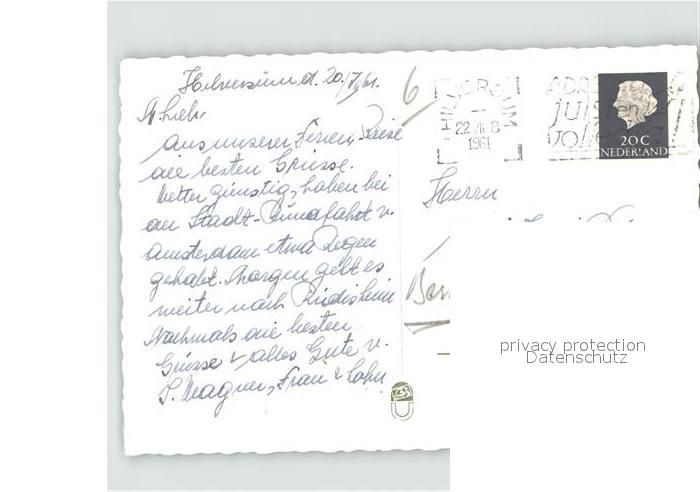 Hilversum d. 20./7.61.
M. Lieb.
Aus unserer Ferien-Reise
die besten Grüsse.
Wetter günstig, haben bei
an Stadt-Rundfahrt v.
Amsterdam etwa Regen
gehabt. Morgen geht es
weiter nach
Nochmals die besten
Grüsse & alles Gute v.
S. Wagner, Frau & Sohn
6
HILVERSUM
22 VII 8
1961
20 C
NEDERLAND
Herrn
privacy protection
Datenschutz